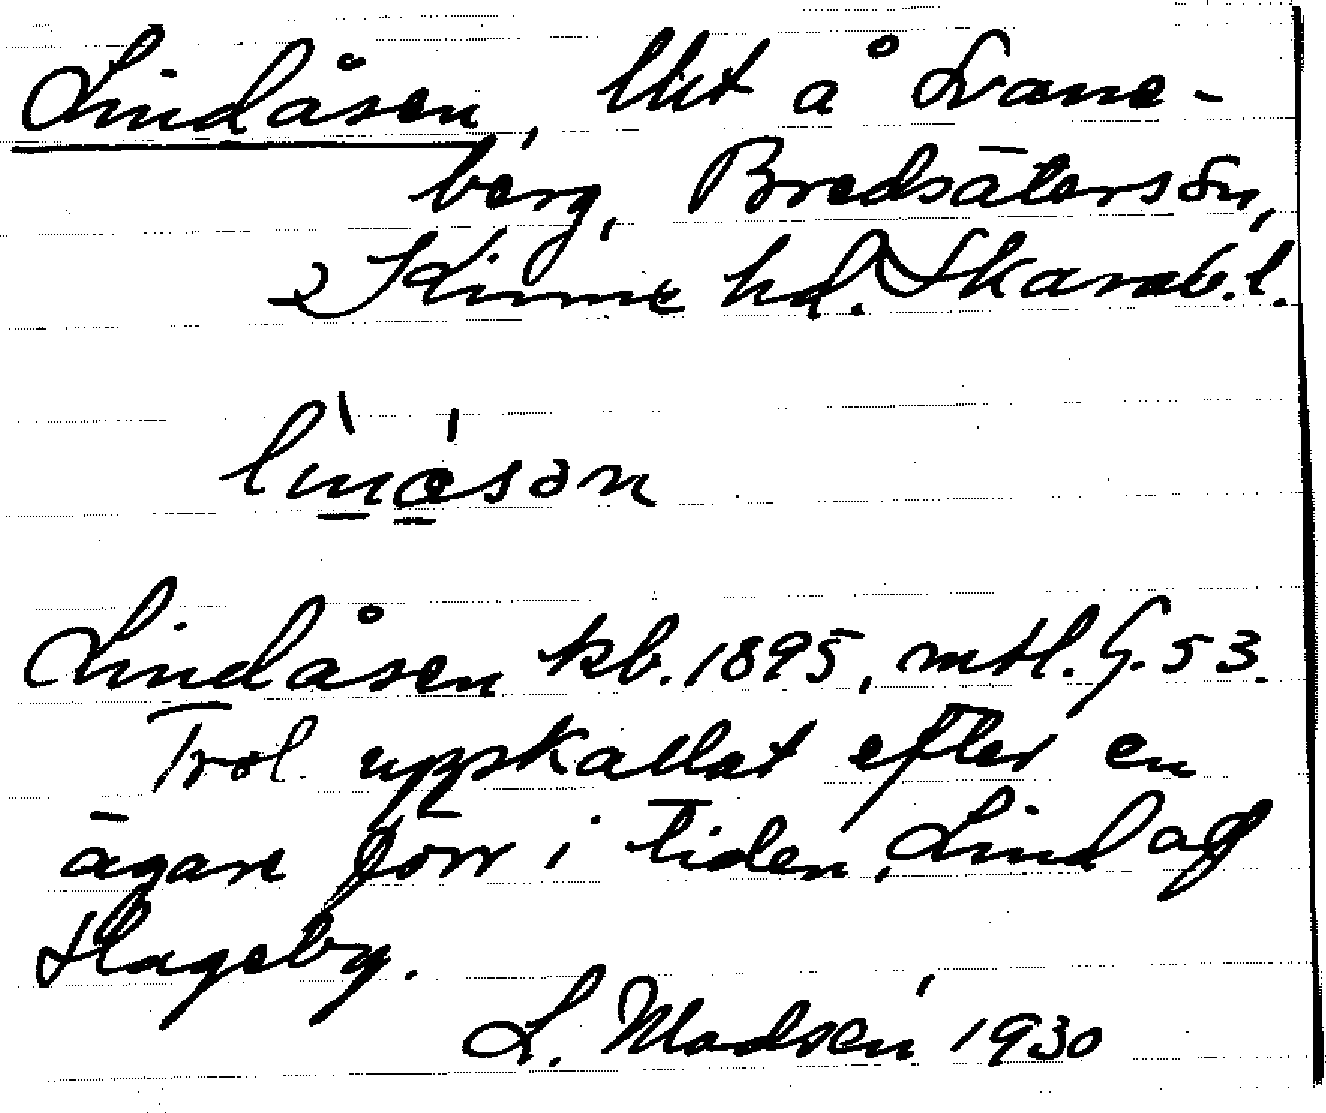 Lindåsen, lht å Svane-
berg, Bredsäters sn,
Kinne hd. Skarab. l.
Lindåsen kb. 1895, mtl. G. 53.
Trol. uppkallat efter en
ägare förr i tiden, Lind af
Hageby.
L. Madsén 1930